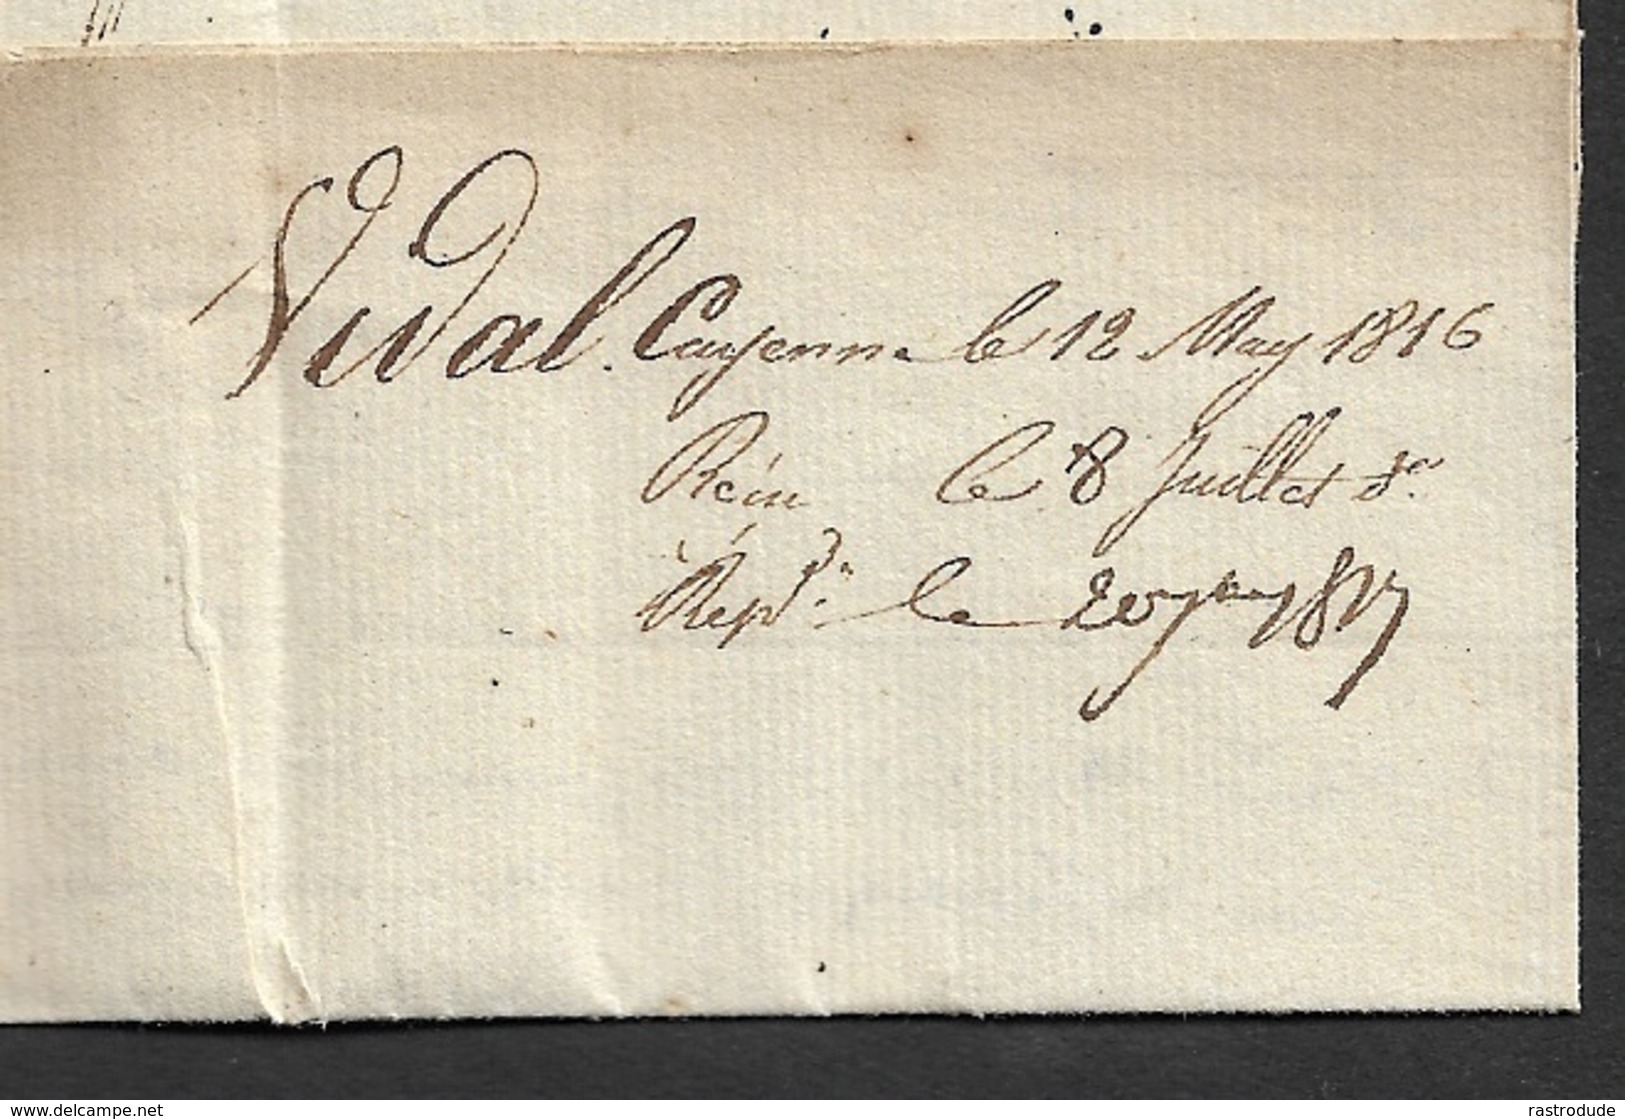 Vidal. Cayenne le 12 May 1816
Récu le 8 Juillet do
Rep. le 20 1817
www.delcampe.net
rastrodude